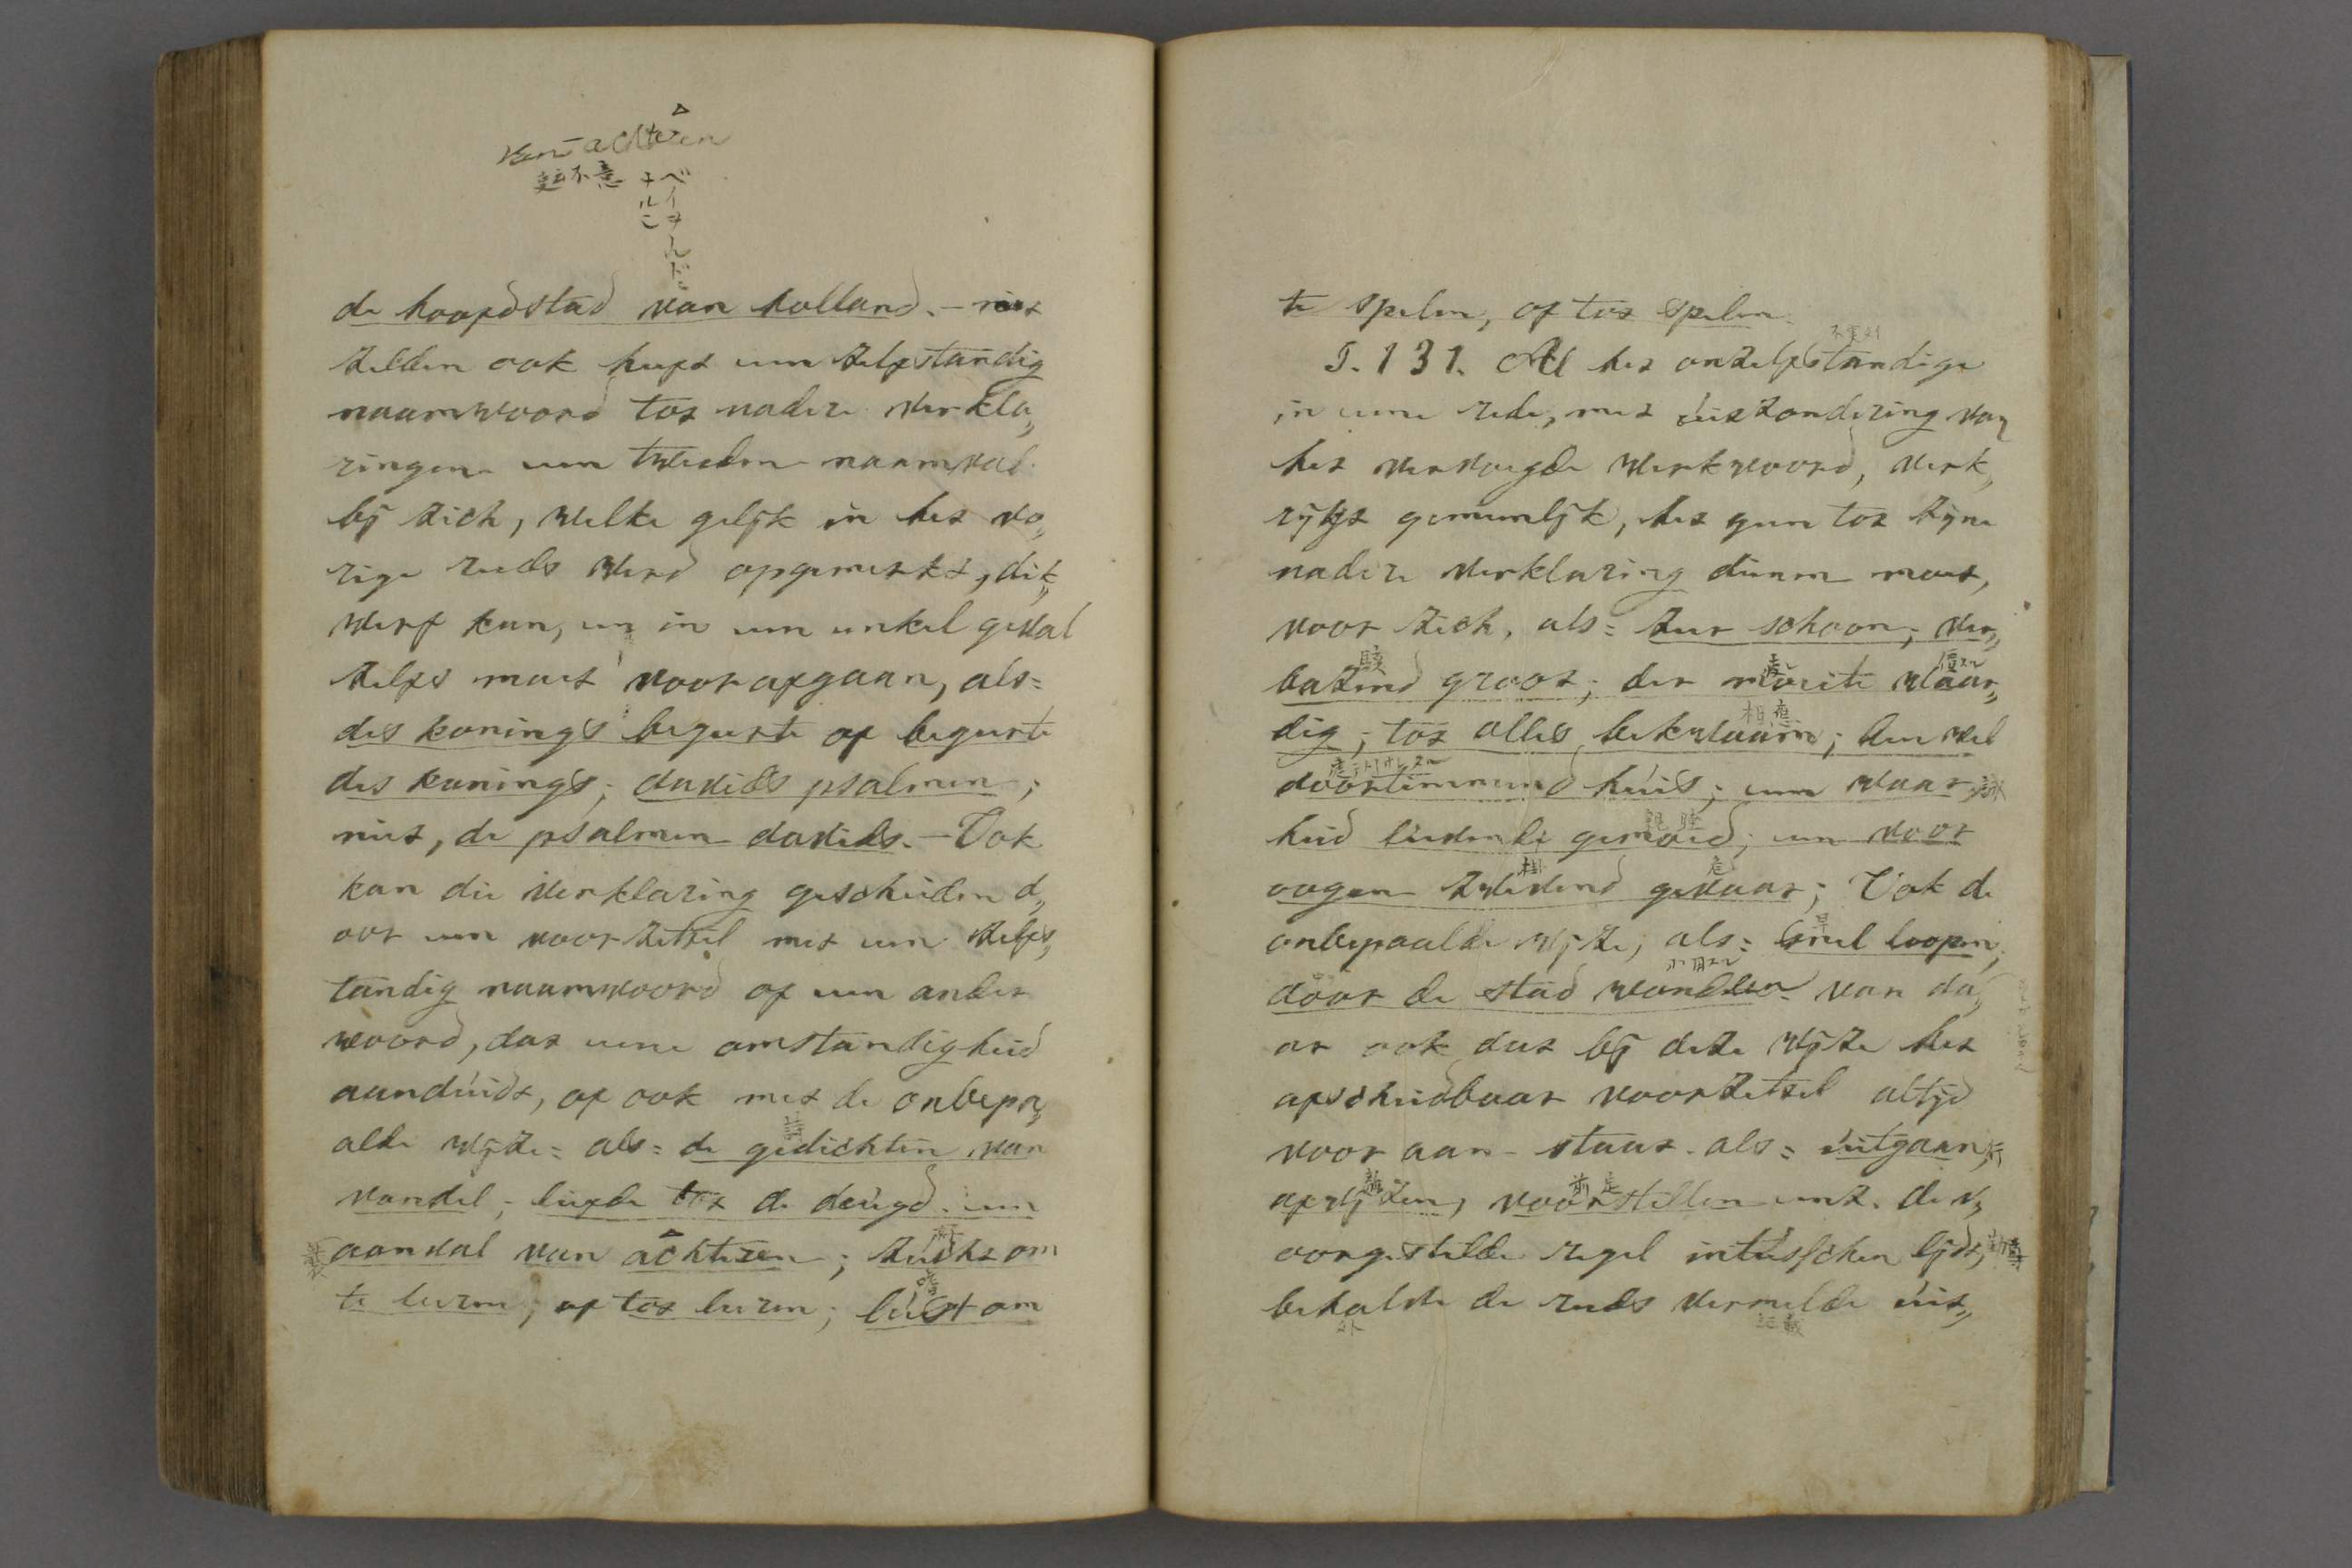 van achteren
de hoofdstad van holland. – niet
zelden ook heeft een zelfstandig
naamwoord tot nadere verkla„
ringen een tweeden naamval
bij zich, welke gelijk in het vo„
rige reeds werd opgemerkt, dik„
werf kan, en in een enkel geval
zelfs moet voorafgaan, als=
des konings begeerte of begeerte
des konings; davids psalmen;
niet, de psalmen davids. – Ook
kan die verklaring geschieden d„
oor een voorzetsel met een zelfs„
tandig naamwoord of een ander
woord, dat eene omstandigheid
aanduidt, of ook met de onbepa„
alde wijze= als= de gedichten van
vondel; liefde tot de deugd; een
aanval van achteren; zucht om
te leeren; of tot leeren; lust om
te spelen, of tot spelen.
§. 131. Al het onzelfstandige
in eene rede, met uitzondering van
het vervoegde werkwoord, verk„
rijgt gemeenlijk, het geen tot zijne
nadere verklaring dienen moet,
voor zich, als= zeer schoon; ver„
bazend groot; der moeite waar„
dig; tot alles bekwaam; een wel
doortimmerd huis; een waar
heid lievende gemoed; een voor
oogen zwevend gevaar; Ook de
onbepaalde wijze, als= snel loopen,
door de stad wandelen van da„
ar ook dat bij deze wijze het
afscheidbaar voorzetsel altijd
voor aan staat. als= uitgaan,
afwijzen, voorstellen enz. de v„
oorgestelde regel intusschen lijdt,
behalve de reeds vermelde uit„